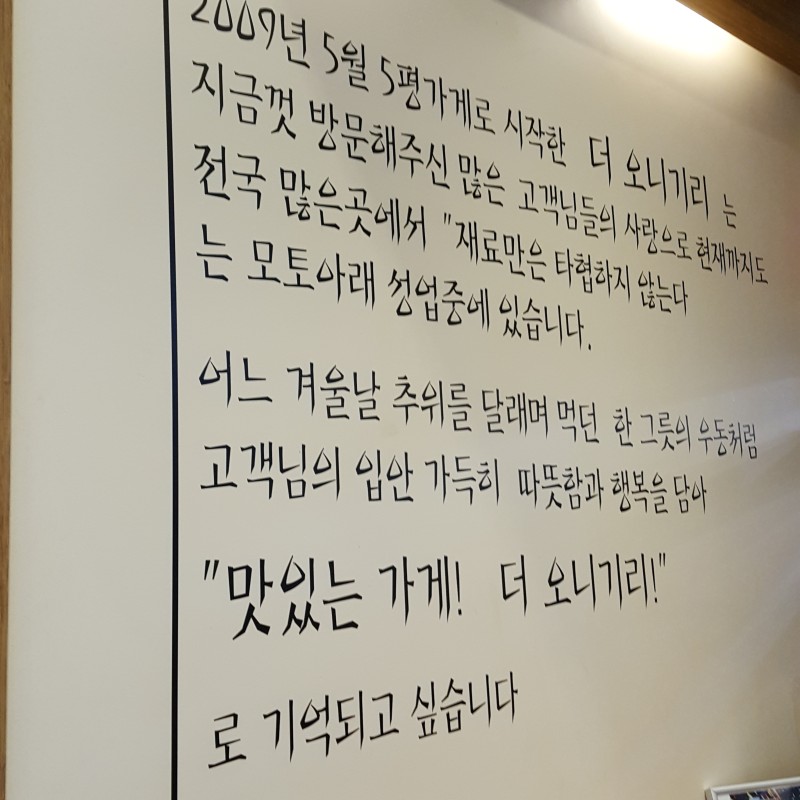 2009년 5월 5평가게로 시작한 더 오니기리 는
지금껏 방문해주신 많은 고객님들의 사랑으로 현재까지도
전국 많은곳에서 "재료만은 타협하지 않는다
는 모토아래 성업중에 있습니다.
어느 겨울날 추위를 달래며 먹던 한 그릇의 우동처럼
고객님의 입안 가득히 따뜻함과 행복을 담아
"맛있는 가게! 더 오니기리!"
로 기억되고 싶습니다